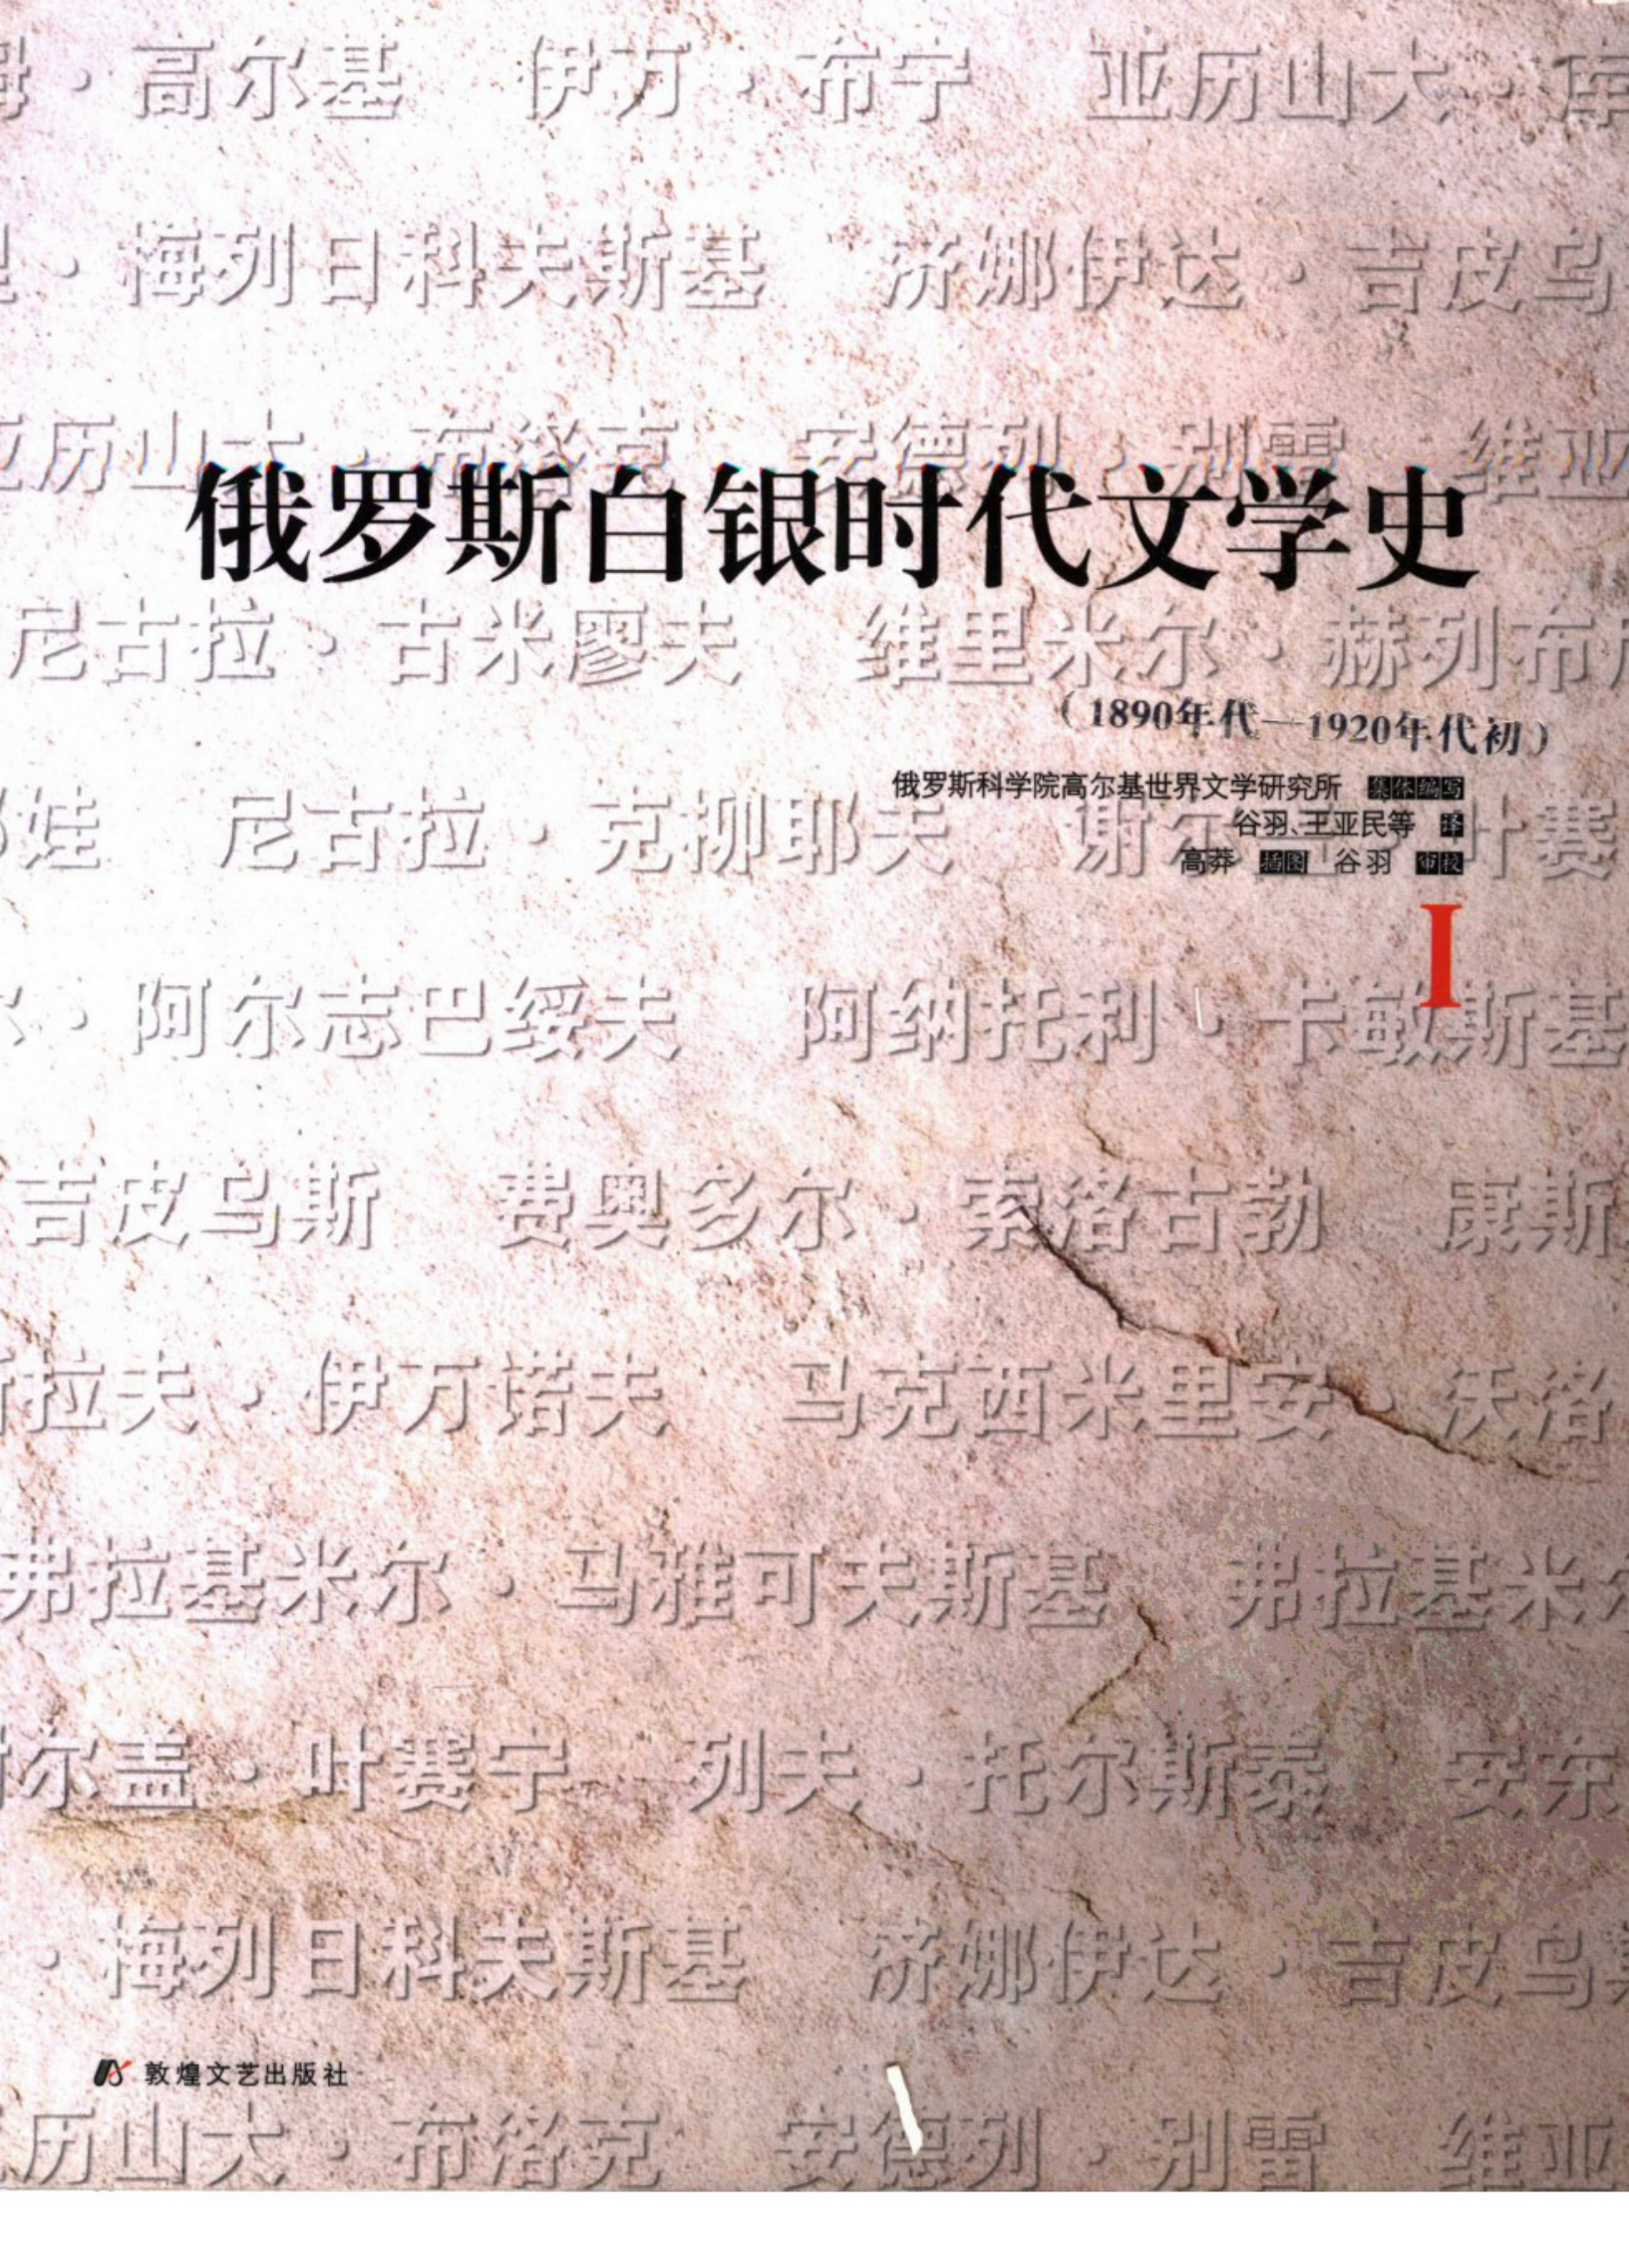 ·高尔基 伊万·布宁 亚历山大·库
·梅列日科夫斯基 济娜伊达·吉皮乌
历山大·布洛克 安德列·别雷 维亚
俄罗斯白银时代文学史
尼古拉·古米廖夫 维里米尔·赫列布尼
(1890年代—1920年代初)
俄罗斯科学院高尔基世界文学研究所 集体编写
娃 尼古拉·克柳耶夫 谢尔盖·叶赛
谷羽、王亚民等 译
高莽 插图 谷羽 审校
I
·阿尔志巴绥夫 阿纳托利·卡敏斯基
吉皮乌斯 费奥多尔·索洛古勃 康斯
拉夫·伊万诺夫 马克西米里安·沃洛
弗拉基米尔·马雅可夫斯基 弗拉基米尔
尔盖·叶赛宁 列夫·托尔斯泰 安东
·梅列日科夫斯基 济娜伊达·吉皮乌斯
敦煌文艺出版社
历山大·布洛克 安德列·别雷 维亚